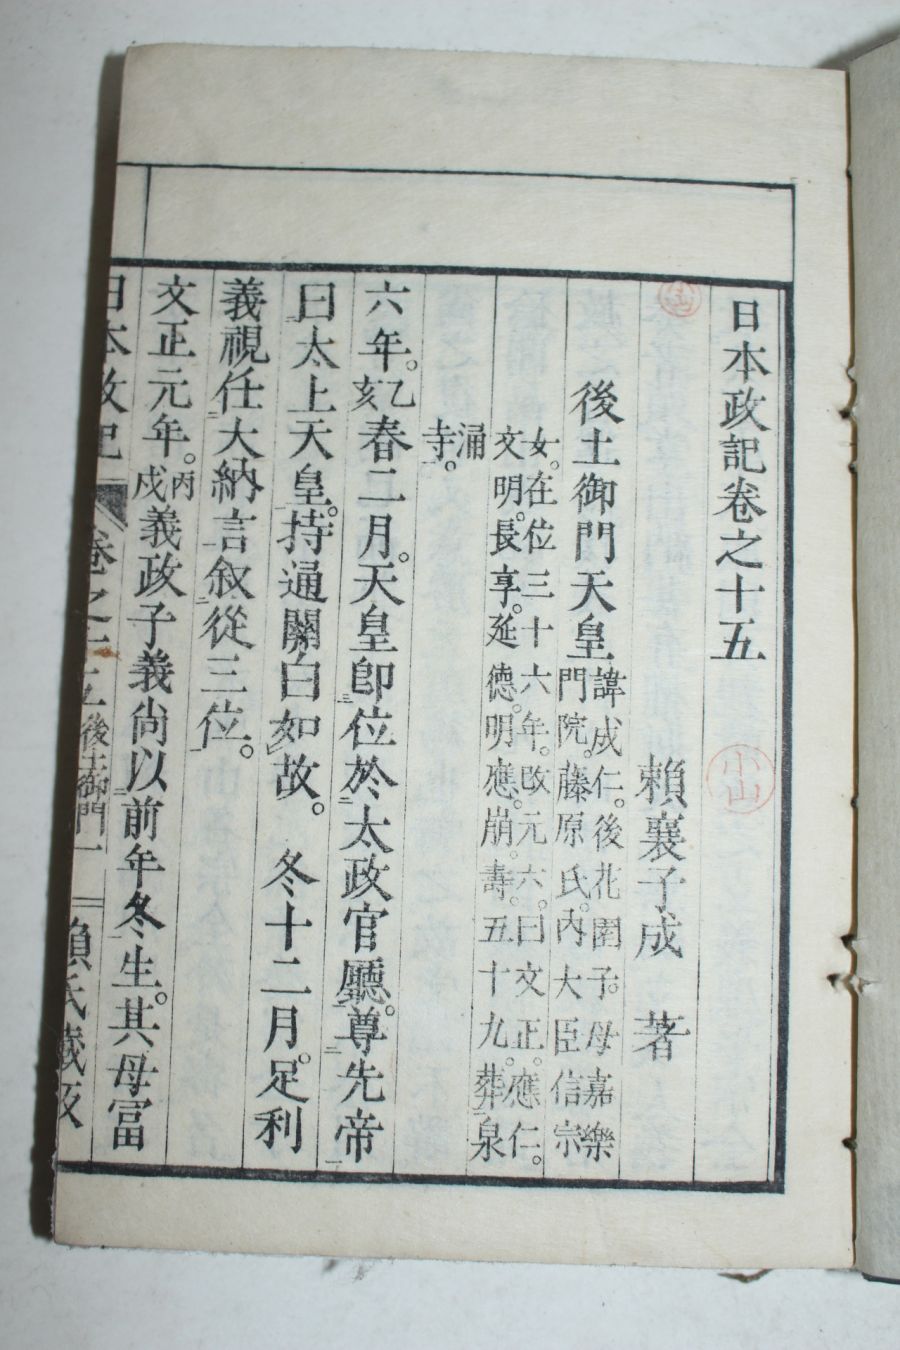 日本政記卷之十五
小山
賴襄子成　著
後土御門天皇
諱成仁。後花園子。母嘉樂
門院。藤原氏。內大臣信宗
女。在位三十六年。改元六。曰文正。應仁。
文明。長享。延德。明應。崩。壽五十九。葬泉
涌
寺。
六年。乙亥春二月。天皇卽位於太政官廳。尊先帝
曰太上天皇。持通關白如故。冬十二月。足利
義視任大納言敘從三位。
文正元年。丙戌義政子義尚以前年冬生。其母富
日本政記　卷之十五　後土御門　一　賴氏藏版